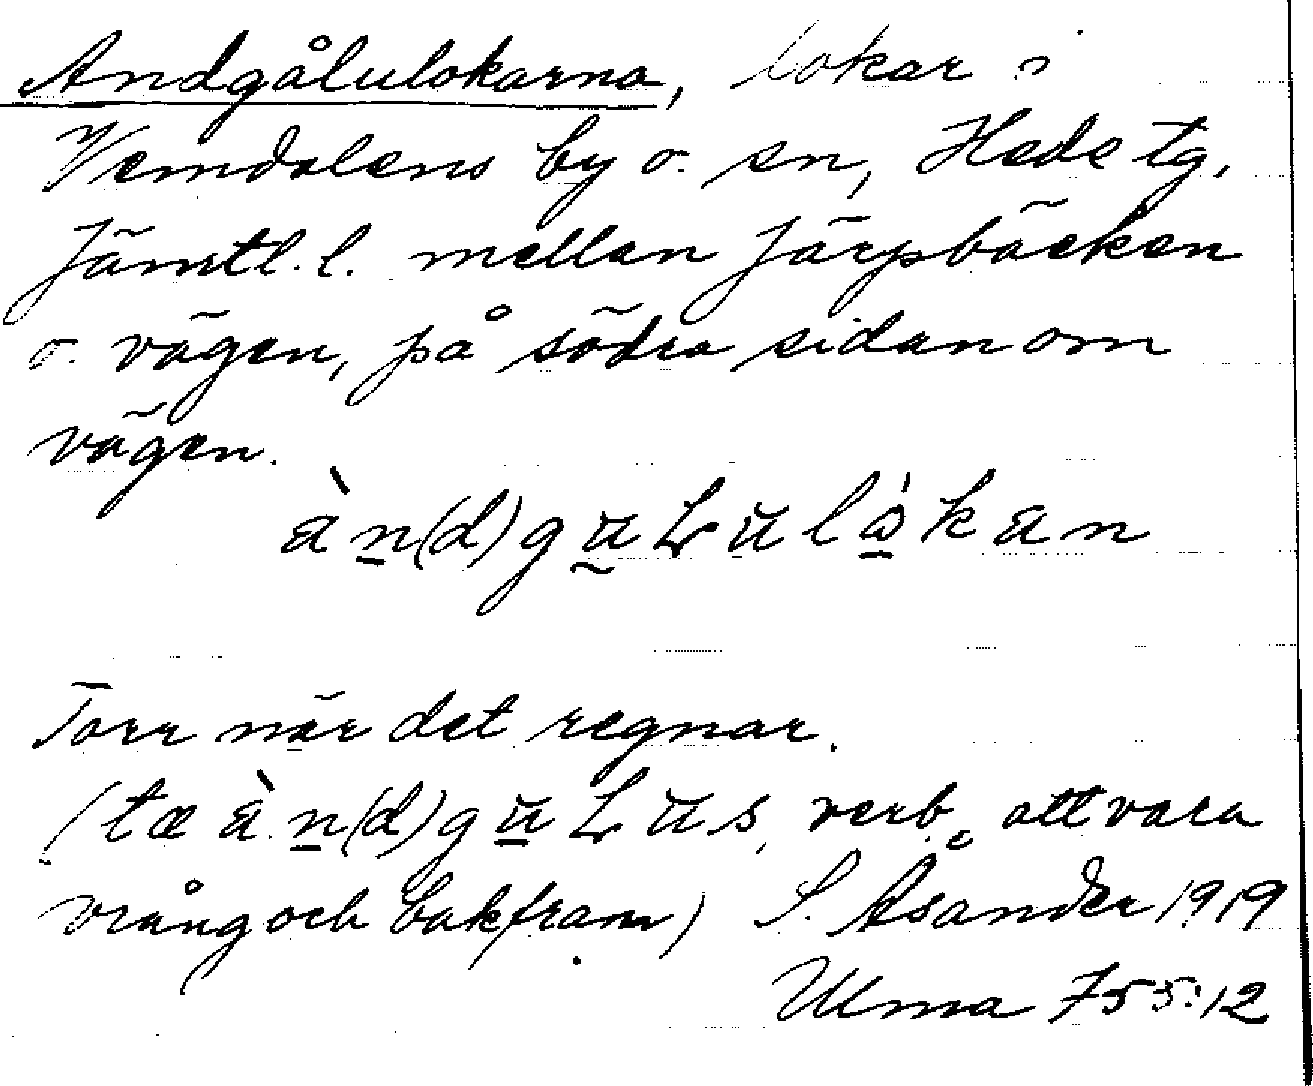 Andgålulokarna, lokar i
Vemdalens by o. sn, Hede tg,
Jämtl. l. mellan Järpbäcken
o. vägen, på södra sidan om
vägen.
àn(d)gu̲Lŭlókan
Torr när det regnar.
(tæ àn(d)gŭLŭs, verb, att vara
vrång och bakfram) S. Åsander 1919
Ulma 755:12